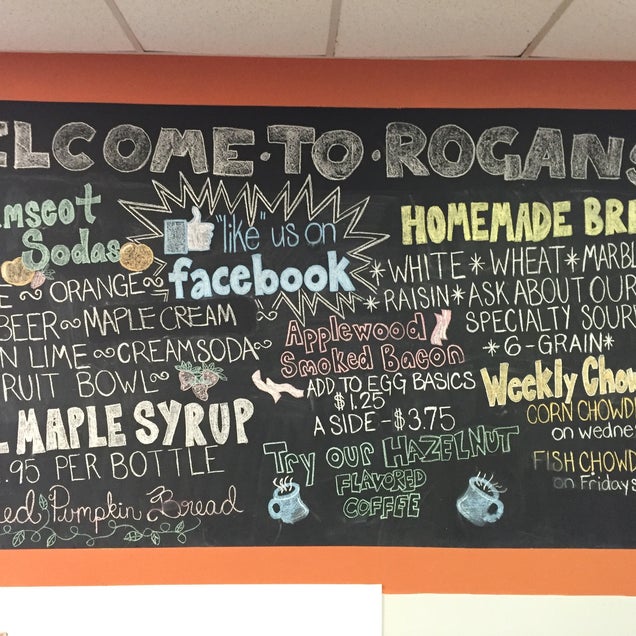 ELCOME·TO·ROGANS
mscot
Sodas
E ~ ORANGE ~
BEER ~ MAPLE CREAM
N LIME ~ CREAM SODA ~
RUIT BOWL ~
L MAPLE SYRUP
.95 PER BOTTLE
ed Pumpkin Bread
"like" us on
facebook
Applewood
Smoked Bacon
ADD TO EGG BASICS
$1.25
A SIDE - $3.75
Try our HAZELNUT
FLAVORED
COFFEE
HOMEMADE BRE
*WHITE * WHEAT * MARBL
*RAISIN * ASK ABOUT OUR
SPECIALTY SOUR
*6-GRAIN*
Weekly Chow
CORN CHOWD
on wednes
FISH CHOWD
on Fridays